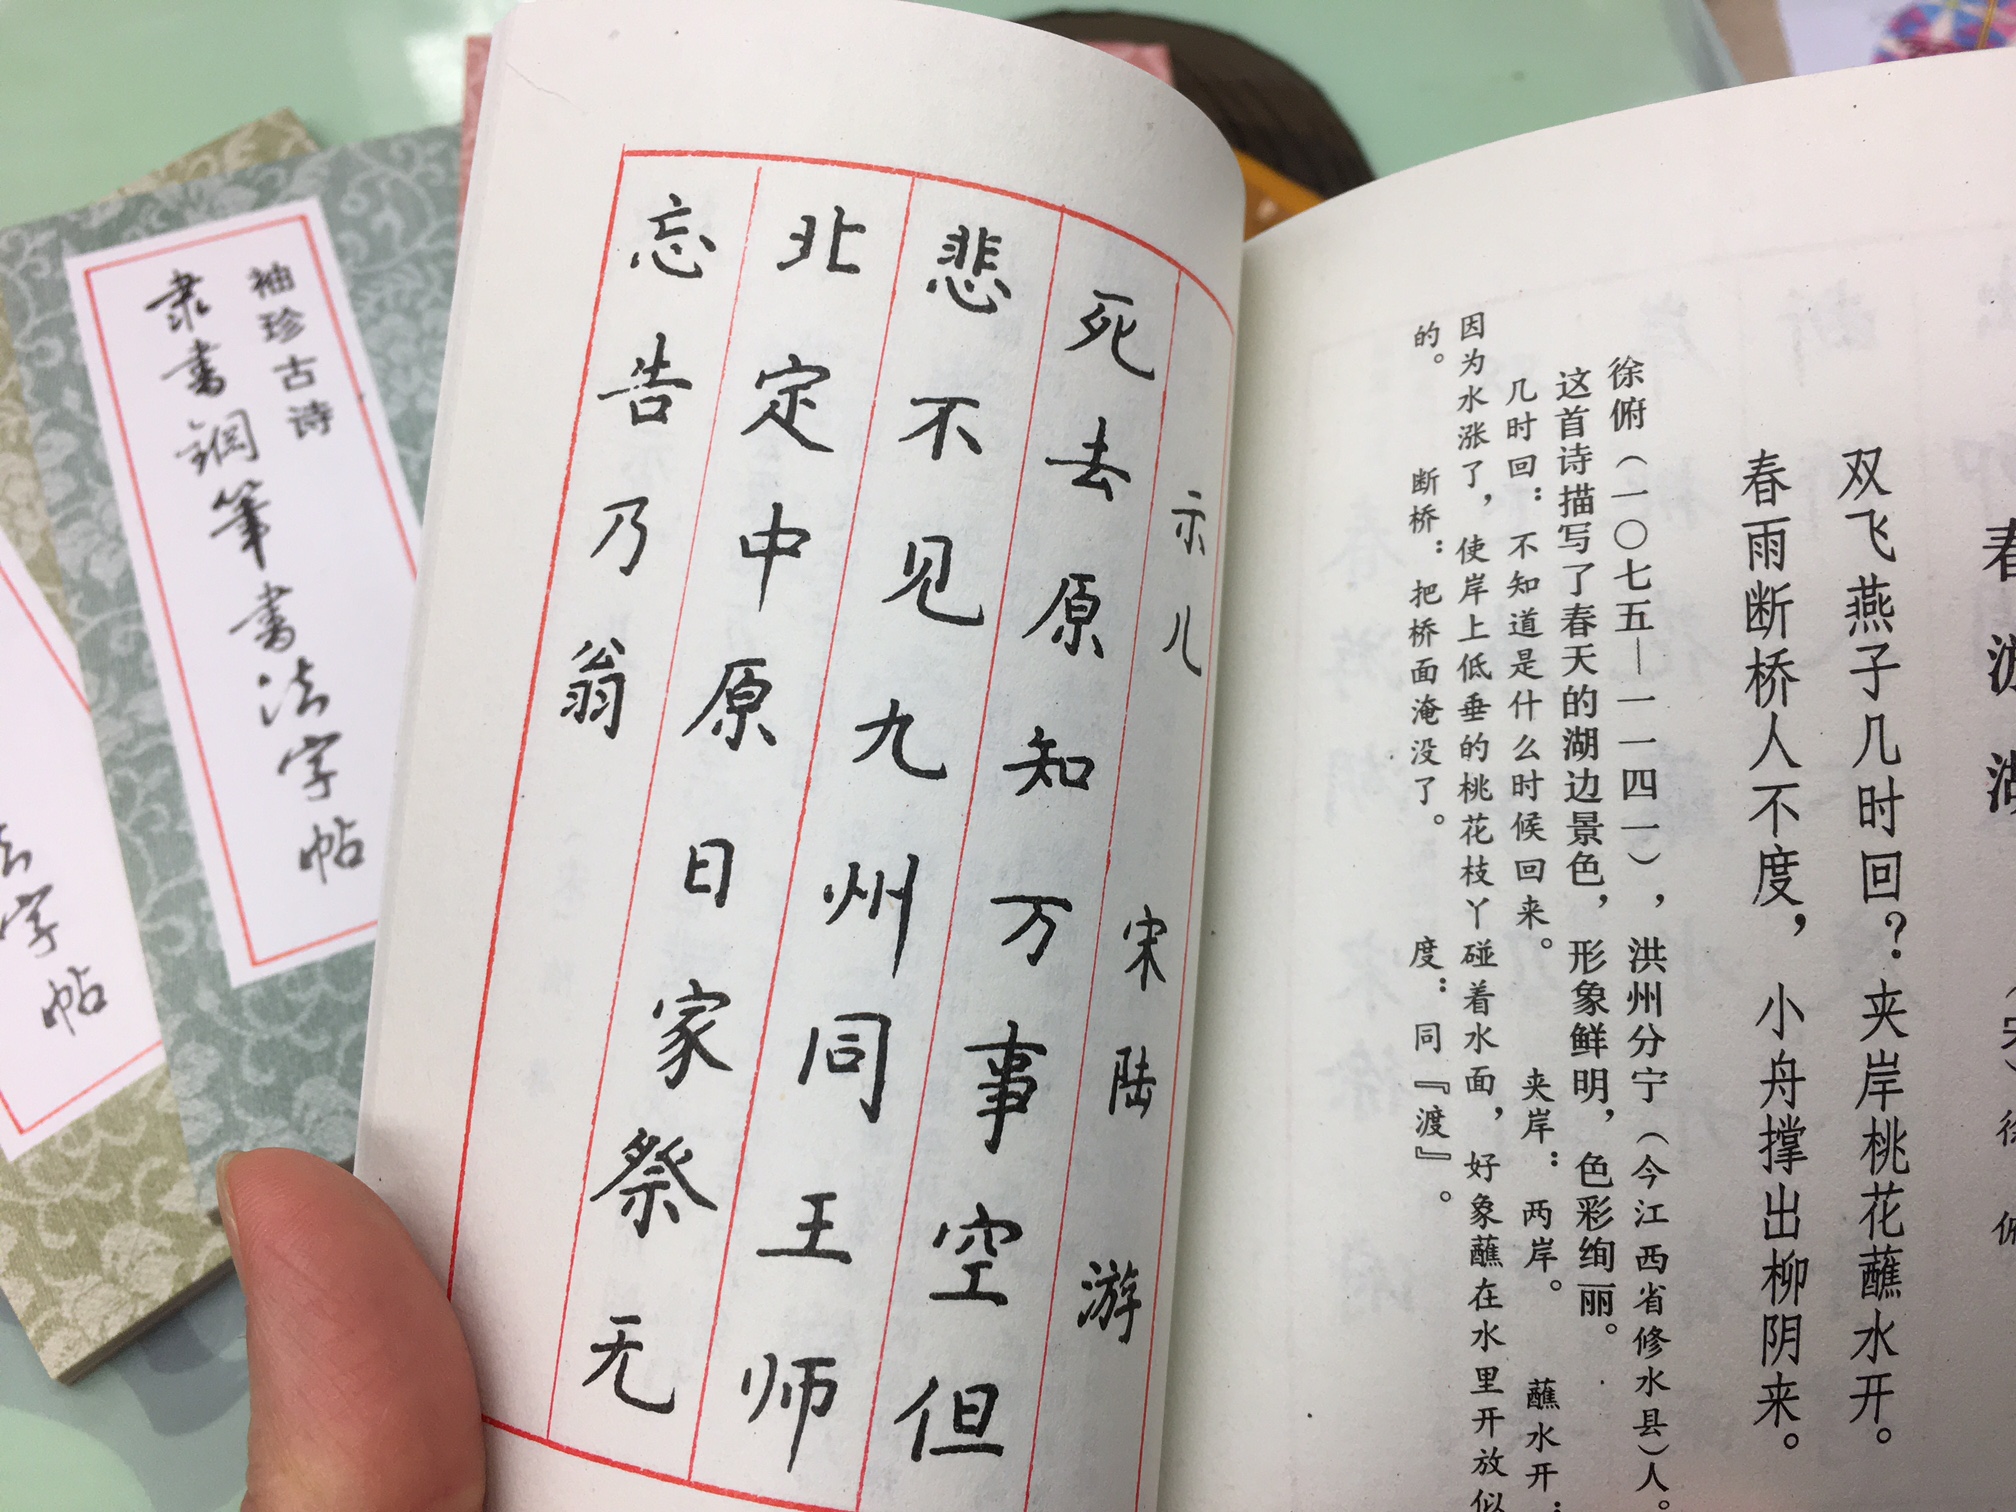 春游湖
双飞燕子几时回？夹岸桃花蘸水开。
春雨断桥人不度，小舟撑出柳阴来。
徐俯（一〇七五—一一四一），洪州分宁（今江西省修水县）人。
这首诗描写了春天的湖边景色，形象鲜明，色彩绚丽。
几时回：不知道是什么时候回来。 夹岸：两岸。 蘸水开：
因为水涨了，使岸上低垂的桃花枝丫碰着水面，好象蘸在水里开放似
的。 断桥：把桥面淹没了。 度：同『渡』。
示儿
宋 陆游
死去原知万事空但
悲不见九州同王师
北定中原日家祭无
忘告乃翁
袖珍古诗
隶書鋼筆書法字帖
字帖